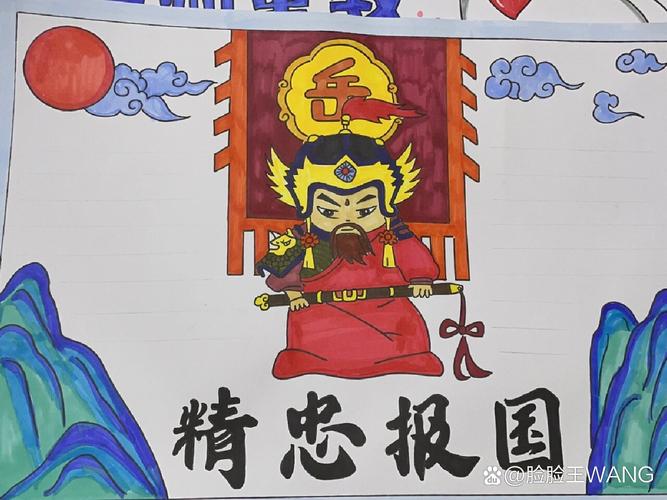 岳
精忠报国
@脸脸王WANG